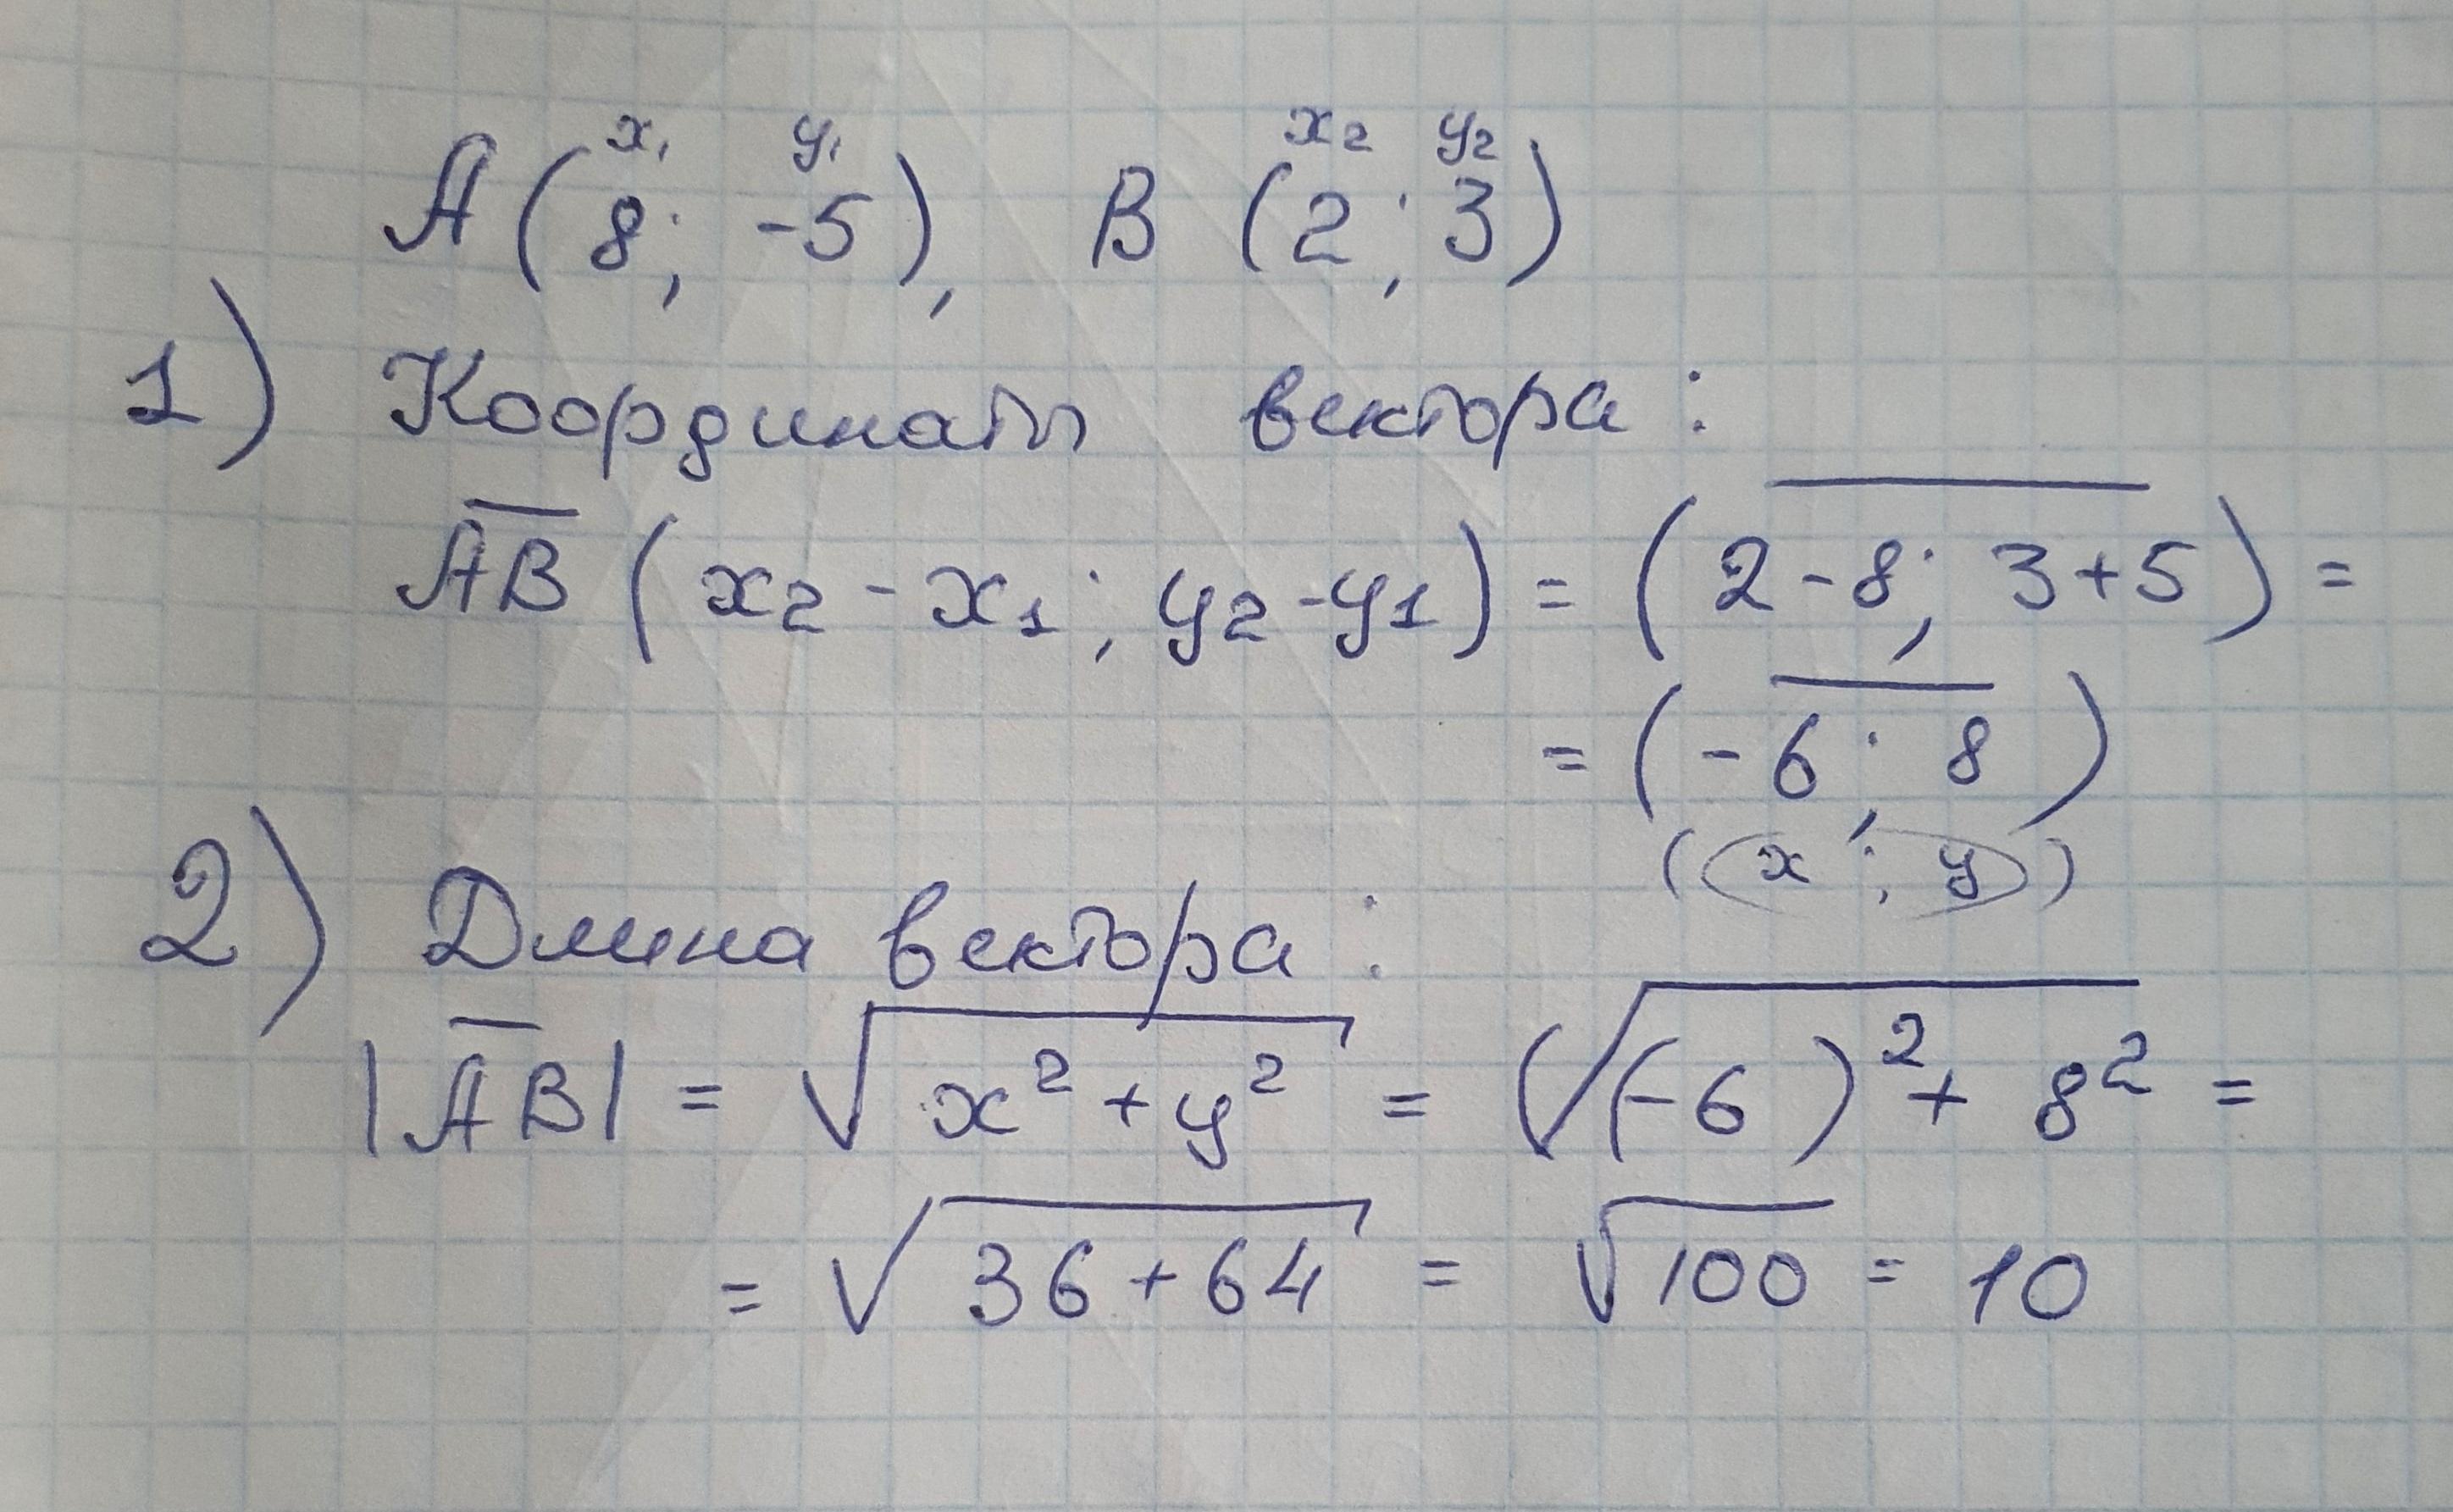 x₁ y₁ x₂ y₂
A(8; -5), B (2; 3)
1) Координаты вектора:
A̅B̅ (x₂ - x₁; y₂ - y₁) = (2 - 8; 3 + 5) =
= (-6; 8)
(x; y)
2) Длина вектора:
|A̅B̅| = √(x² + y²) = √((-6)² + 8²) =
= √(36 + 64) = √100 = 10